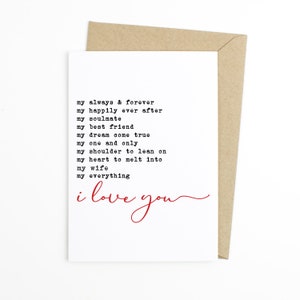 my always & forever
my happily ever after
my soulmate
my best friend
my dream some true
my one and only
my shoulder to lean on
my heart to melt into
my wife
my everything
i love you